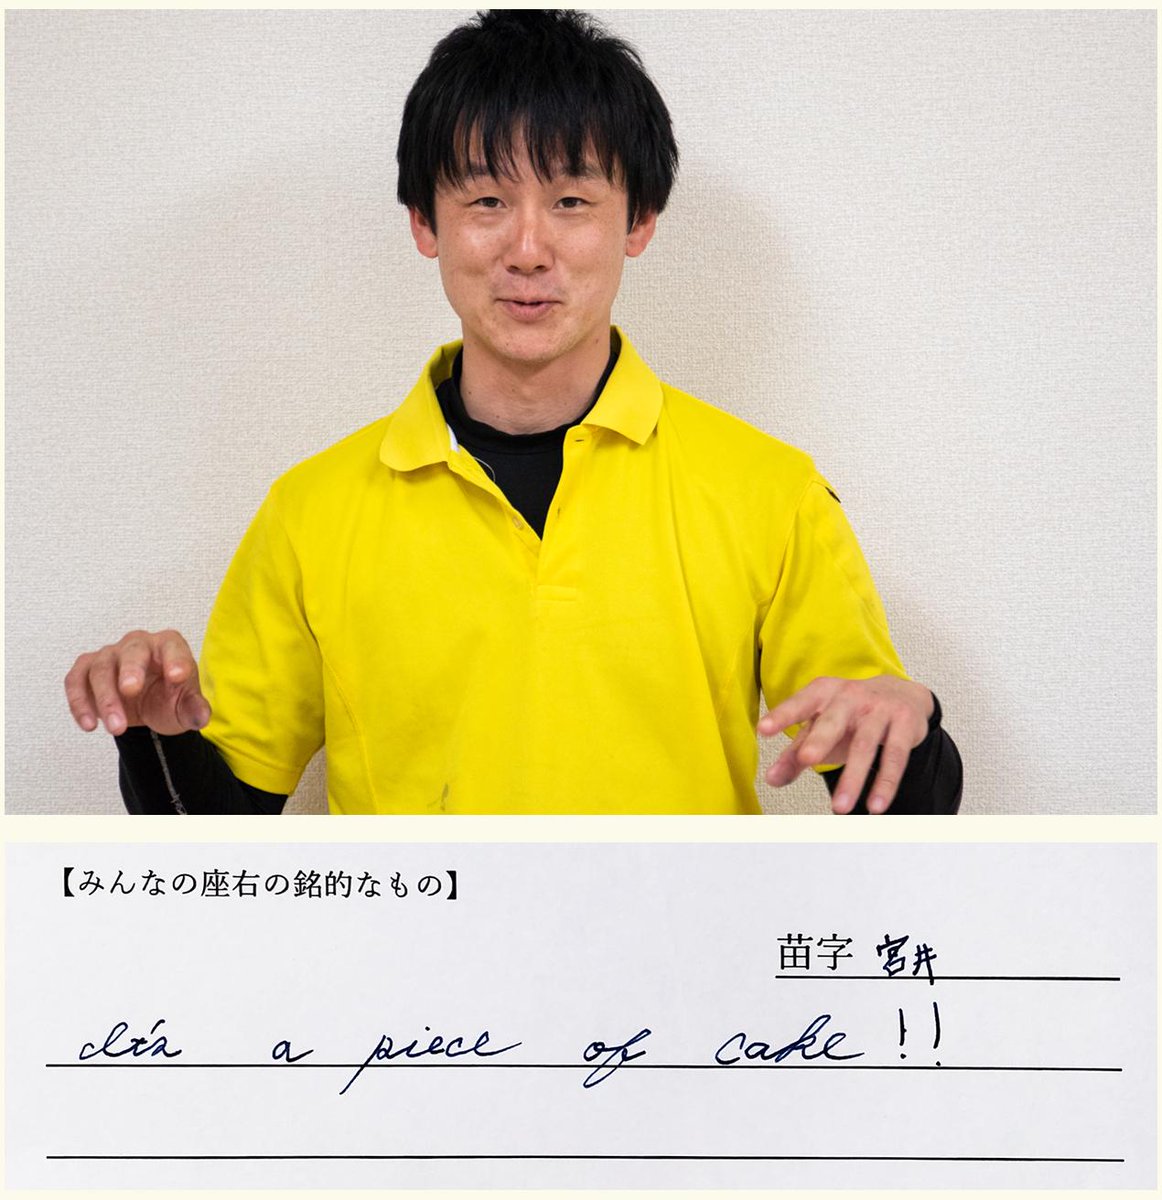 【みんなの座右の銘的なもの】
苗字 宮井
It's a piece of cake!!